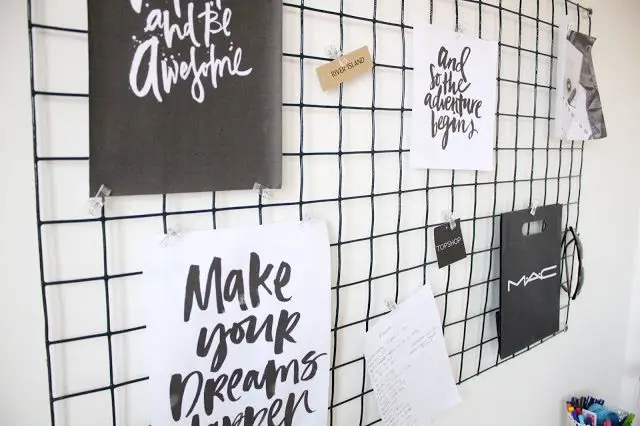 and Be
Awesome
RIVER ISLAND
and
so the
adventure
begins
TOPSHOP
MAC
Make
your
Dreams
Happen